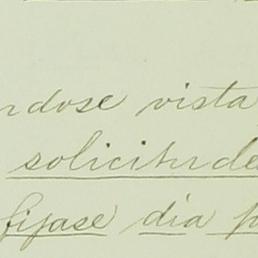 ndose vista
solicitude
fijase dia p